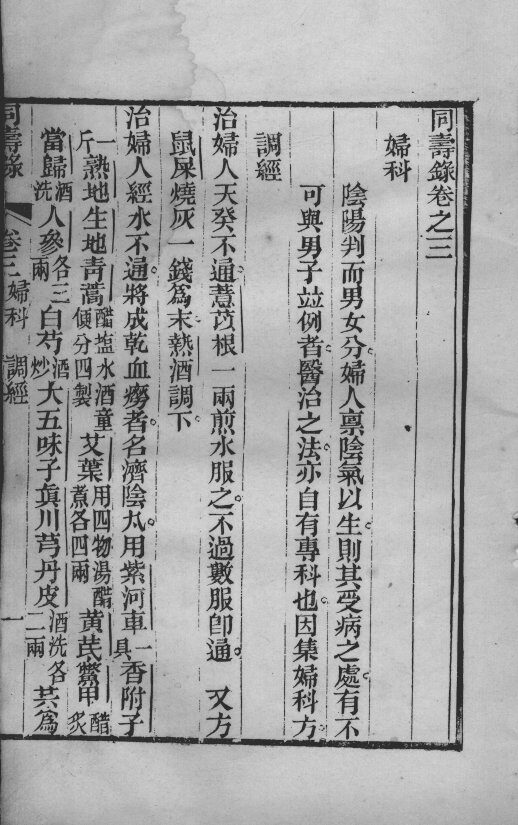 同壽錄卷之三
婦科
陰陽判而男女分婦人禀陰氣以生則其受病之處有不
可與男子並例者醫治之法亦自有專科也因集婦科方
調經
治婦人天癸不通薏苡根一兩煎水服之不過數服卽通 又方
鼠屎燒灰一錢爲末熱酒調下
治婦人經水不通將成乾血癆者名濟陰丸用紫河車一具香附子
一斤熟地生地青蒿醋塩水酒童便分四製艾葉用四物湯醋煮各四兩黃芪鱉甲醋炙
當歸酒洗人參各三兩白芍酒炒大五味子眞川芎丹皮酒洗各二兩共爲
同壽錄 卷三 婦科 調經 一